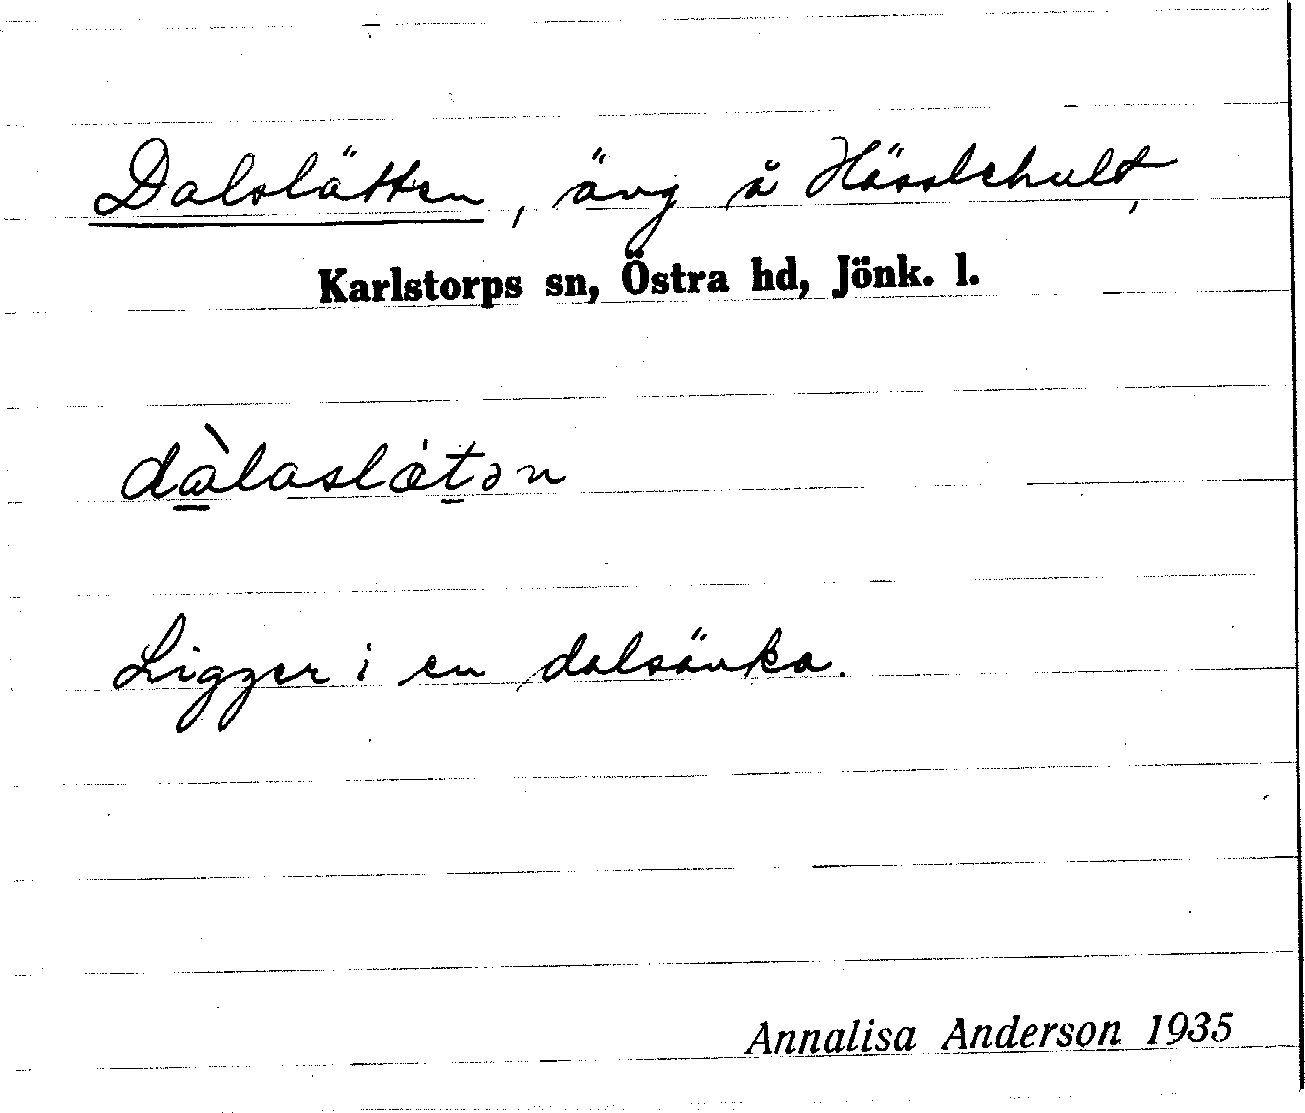 Dalslätten, äng å Hässlehult,
Karlstorps sn, Östra hd, Jönk. l.
dàlaslǽtən
Ligger i en dalsänka.
Annalisa Anderson 1935